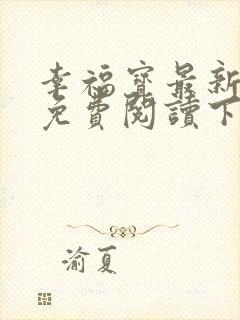 幸福寶最新
免費閱讀下
渝夏